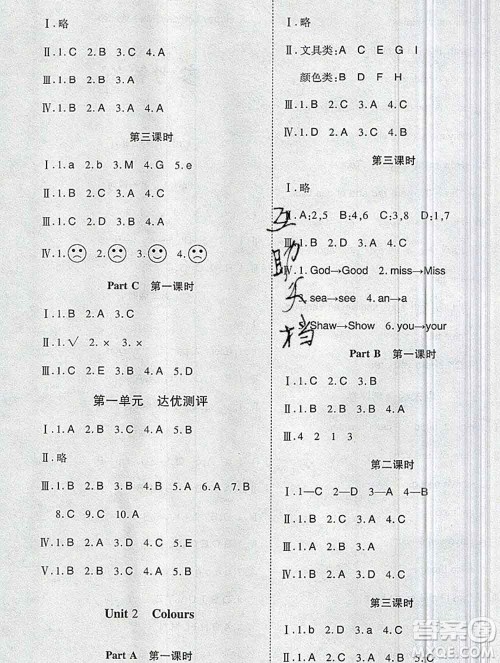 Ⅰ.略
Ⅲ.1.C 2.B 3.C 4.A
Ⅳ.1.A 2.B 3.A 4.A
第三课时
Ⅰ.1.a 2.b 3.M 4.G 5.e
Ⅲ.1.B 2.B 3.A
Ⅳ.1. 2. 3. 4.
Part C 第一课时
Ⅰ.1.B 2.B 3.B
Ⅱ.1.√ 2.× 3.×
Ⅲ.1.D 2.E 3.C 4.A 5.B
第一单元 达优测评
Ⅰ.1.A 2.B 3.C 4.A 5.B
Ⅱ.略
Ⅲ.1.B 2.B 3.B 4.A 5.B 6.A 7.B
8.C 9.C 10.A
Ⅳ.1.B 2.C 3.A 4.D 5.E
Ⅴ.1.B 2.A 3.A 4.B 5.B
Unit 2 Colours
Part A 第一课时
Ⅰ.略
Ⅱ.文具类:A C E G I
颜色类:B D F H
Ⅲ.1.B 2.C 3.A 4.C
Ⅳ.1.B 2.B 3.A 4.C
第三课时
Ⅰ.略
Ⅱ.A:2,5 B:4,6 C:3,8 D:1,7
Ⅲ.1.B 2.C 3.A 4.C
Ⅳ.1.God→Good 2.miss→Miss
3.sea→see 4.an→a
5.Shaw→Show 6.you→your
Part B 第一课时
Ⅰ.1.C 2.C 3.B
Ⅱ.1.A 2.B 3.A 4.B
Ⅲ.4 2 1 3
第二课时
Ⅰ.1—C 2—D 3—A 4—B
Ⅱ.1.A 2.B 3.A 4.A
Ⅲ.1.B 2.A 3.B 4.C
第三课时
Ⅰ.1.D 2.b 3.a 4.c
Ⅱ.1.A 2.B 3.A 4.B 5.C
互助文档
答案圈
MXQE.COM